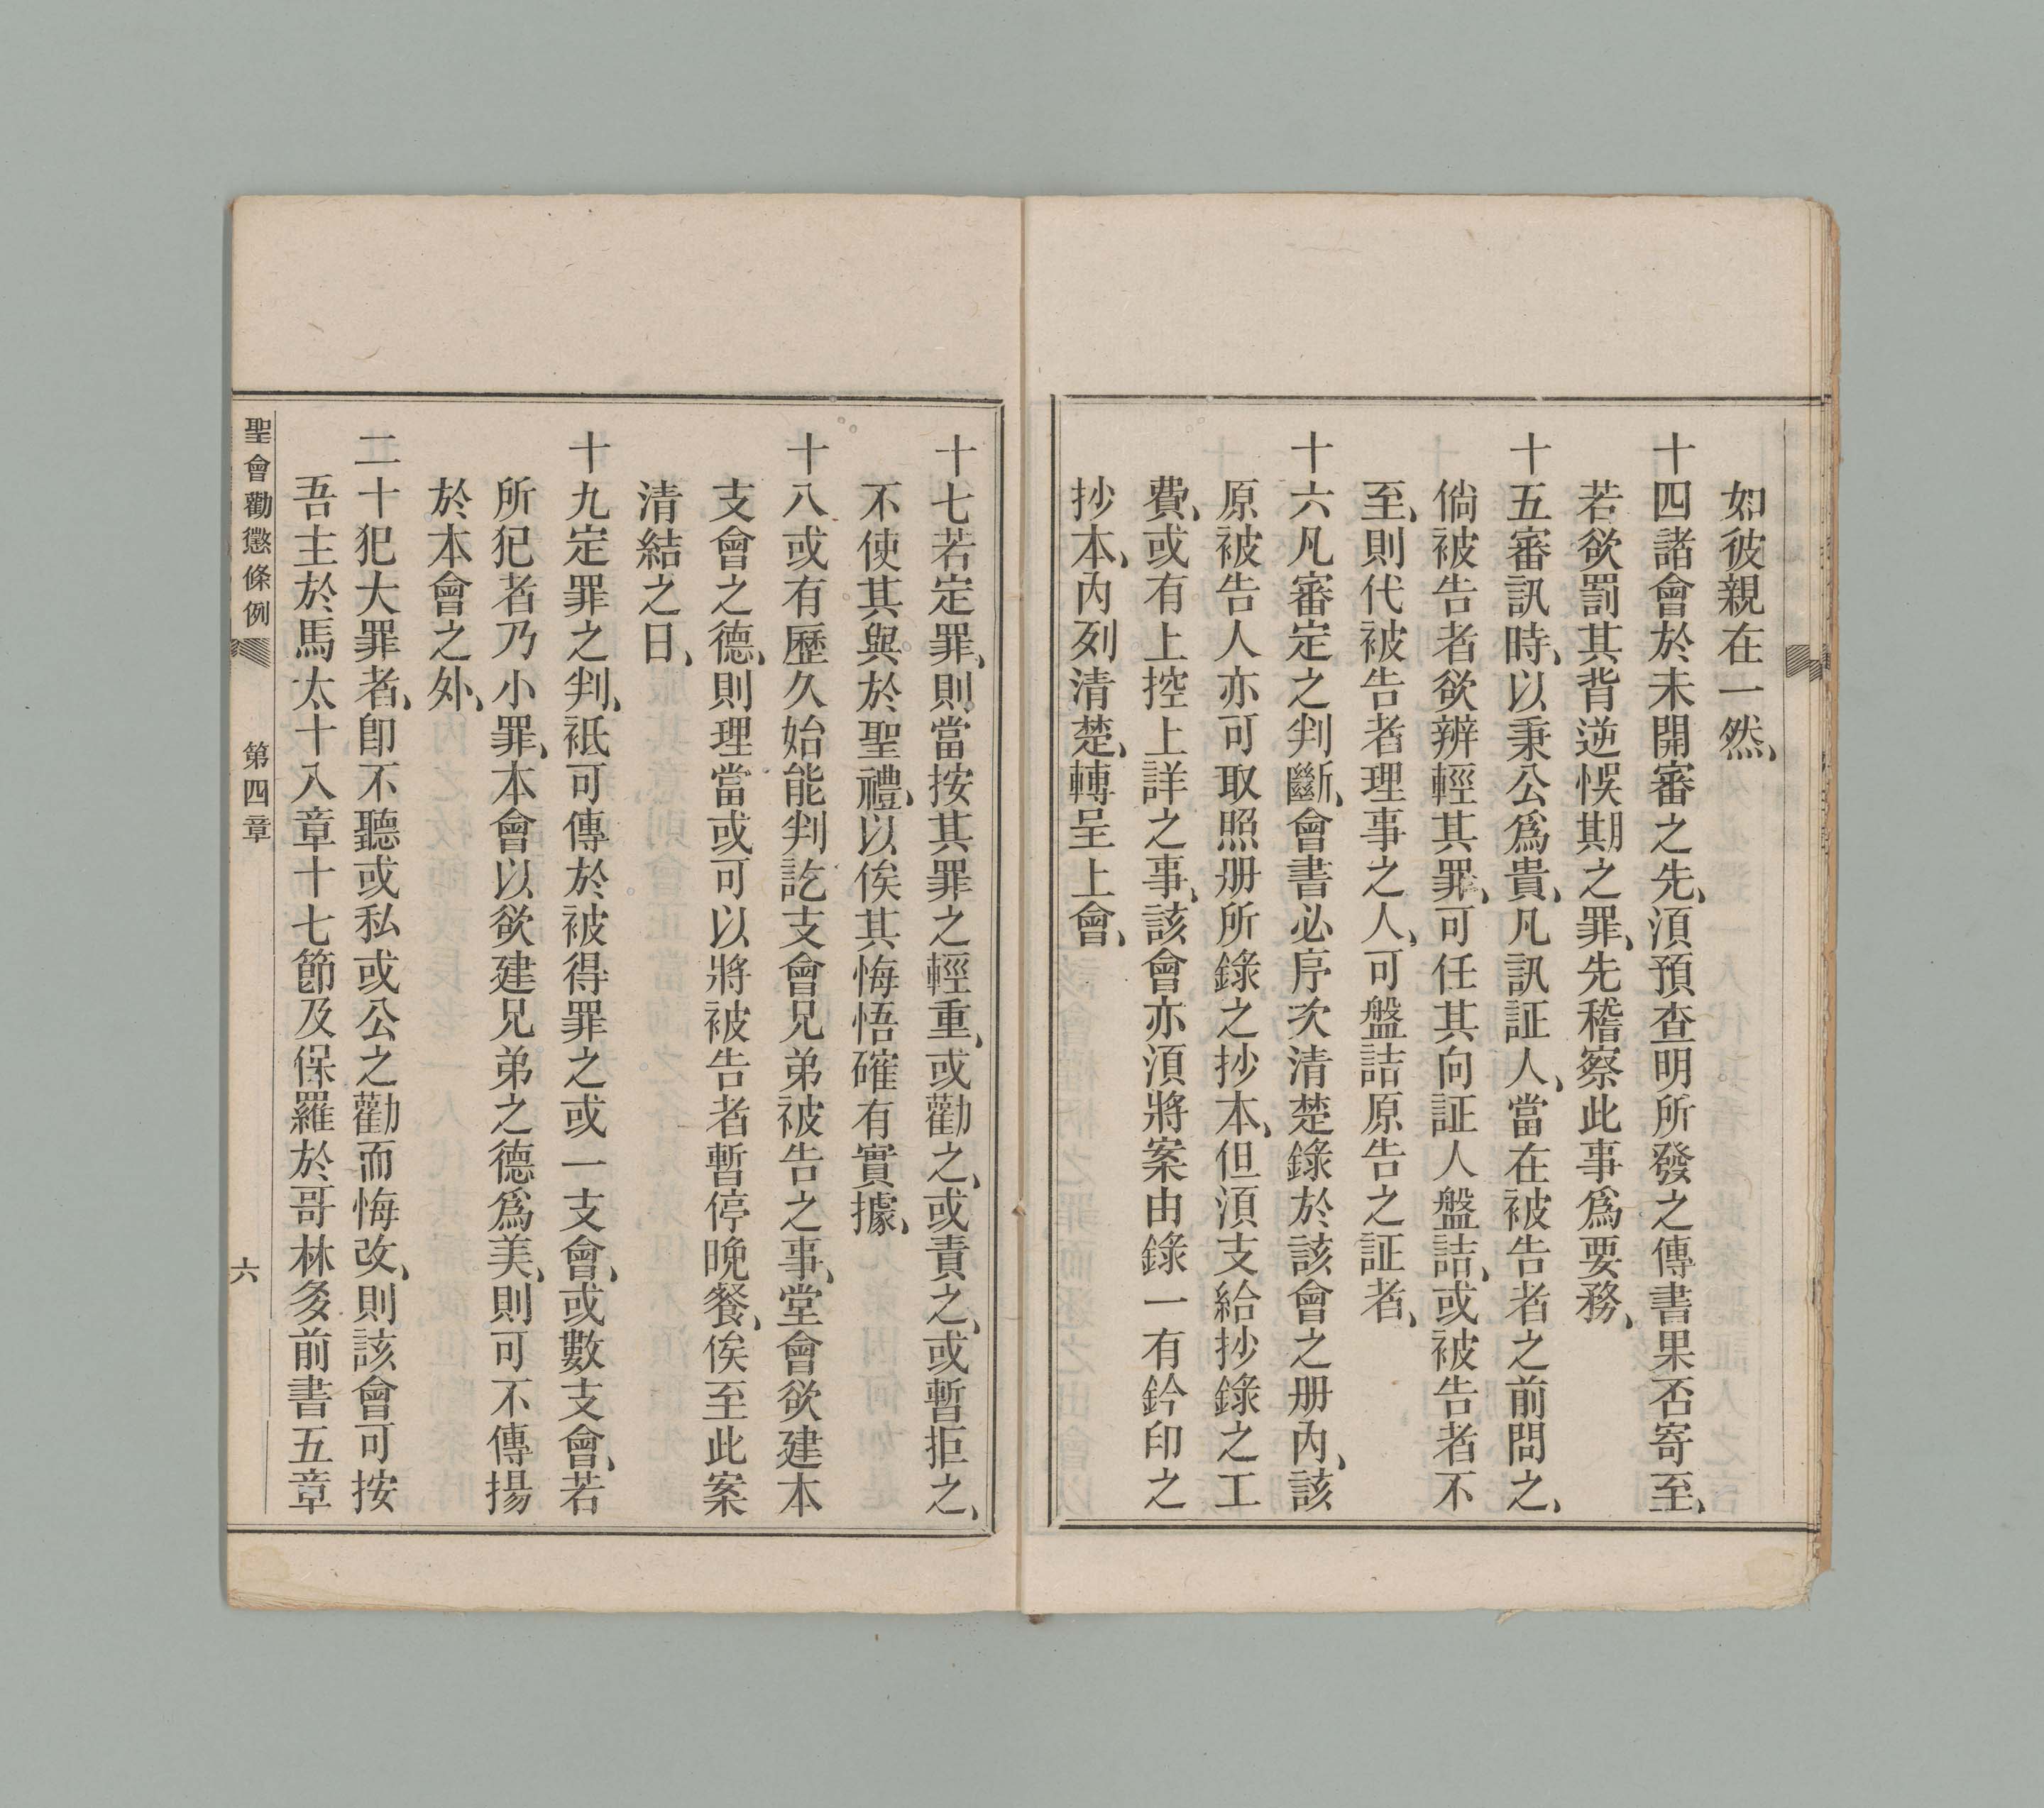 如彼親在一然、
十四諸會於未開審之先、須預查明所發之傳書果否寄至、
若欲罰其背逆悞期之罪、先稽察此事爲要務、
十五審訊時、以秉公爲貴、凡訊証人、當在被告者之前問之、
倘被告者欲辨輕其罪、可任其向証人盤詰、或被告者不
至、則代被告者理事之人、可盤詰原告之証者、
十六凡審定之判斷、會書必序次清楚錄於該會之册內、該
原被告人亦可取照册所錄之抄本、但須支給抄錄之工
費、或有上控上詳之事、該會亦須將案由錄一有鈐印之
抄本、內列清楚、轉呈上會、
十七若定罪、則當按其罪之輕重、或勸之、或責之、或暫拒之、
不使其與於聖禮、以俟其悔悟確有實據、
十八或有歷久始能判訖支會兄弟被告之事、堂會欲建本
支會之德、則理當或可以將被告者暫停晚餐、俟至此案
清結之日、
十九定罪之判、祗可傳於被得罪之或一支會、或數支會、若
所犯者乃小罪、本會以欲建兄弟之德爲美、則可不傳揚
於本會之外、
二十犯大罪者、卽不聽或私或公之勸而悔改、則該會可按
吾主於馬太十八章十七節及保羅於哥林多前書五章
聖會勸懲條例 第四章 六